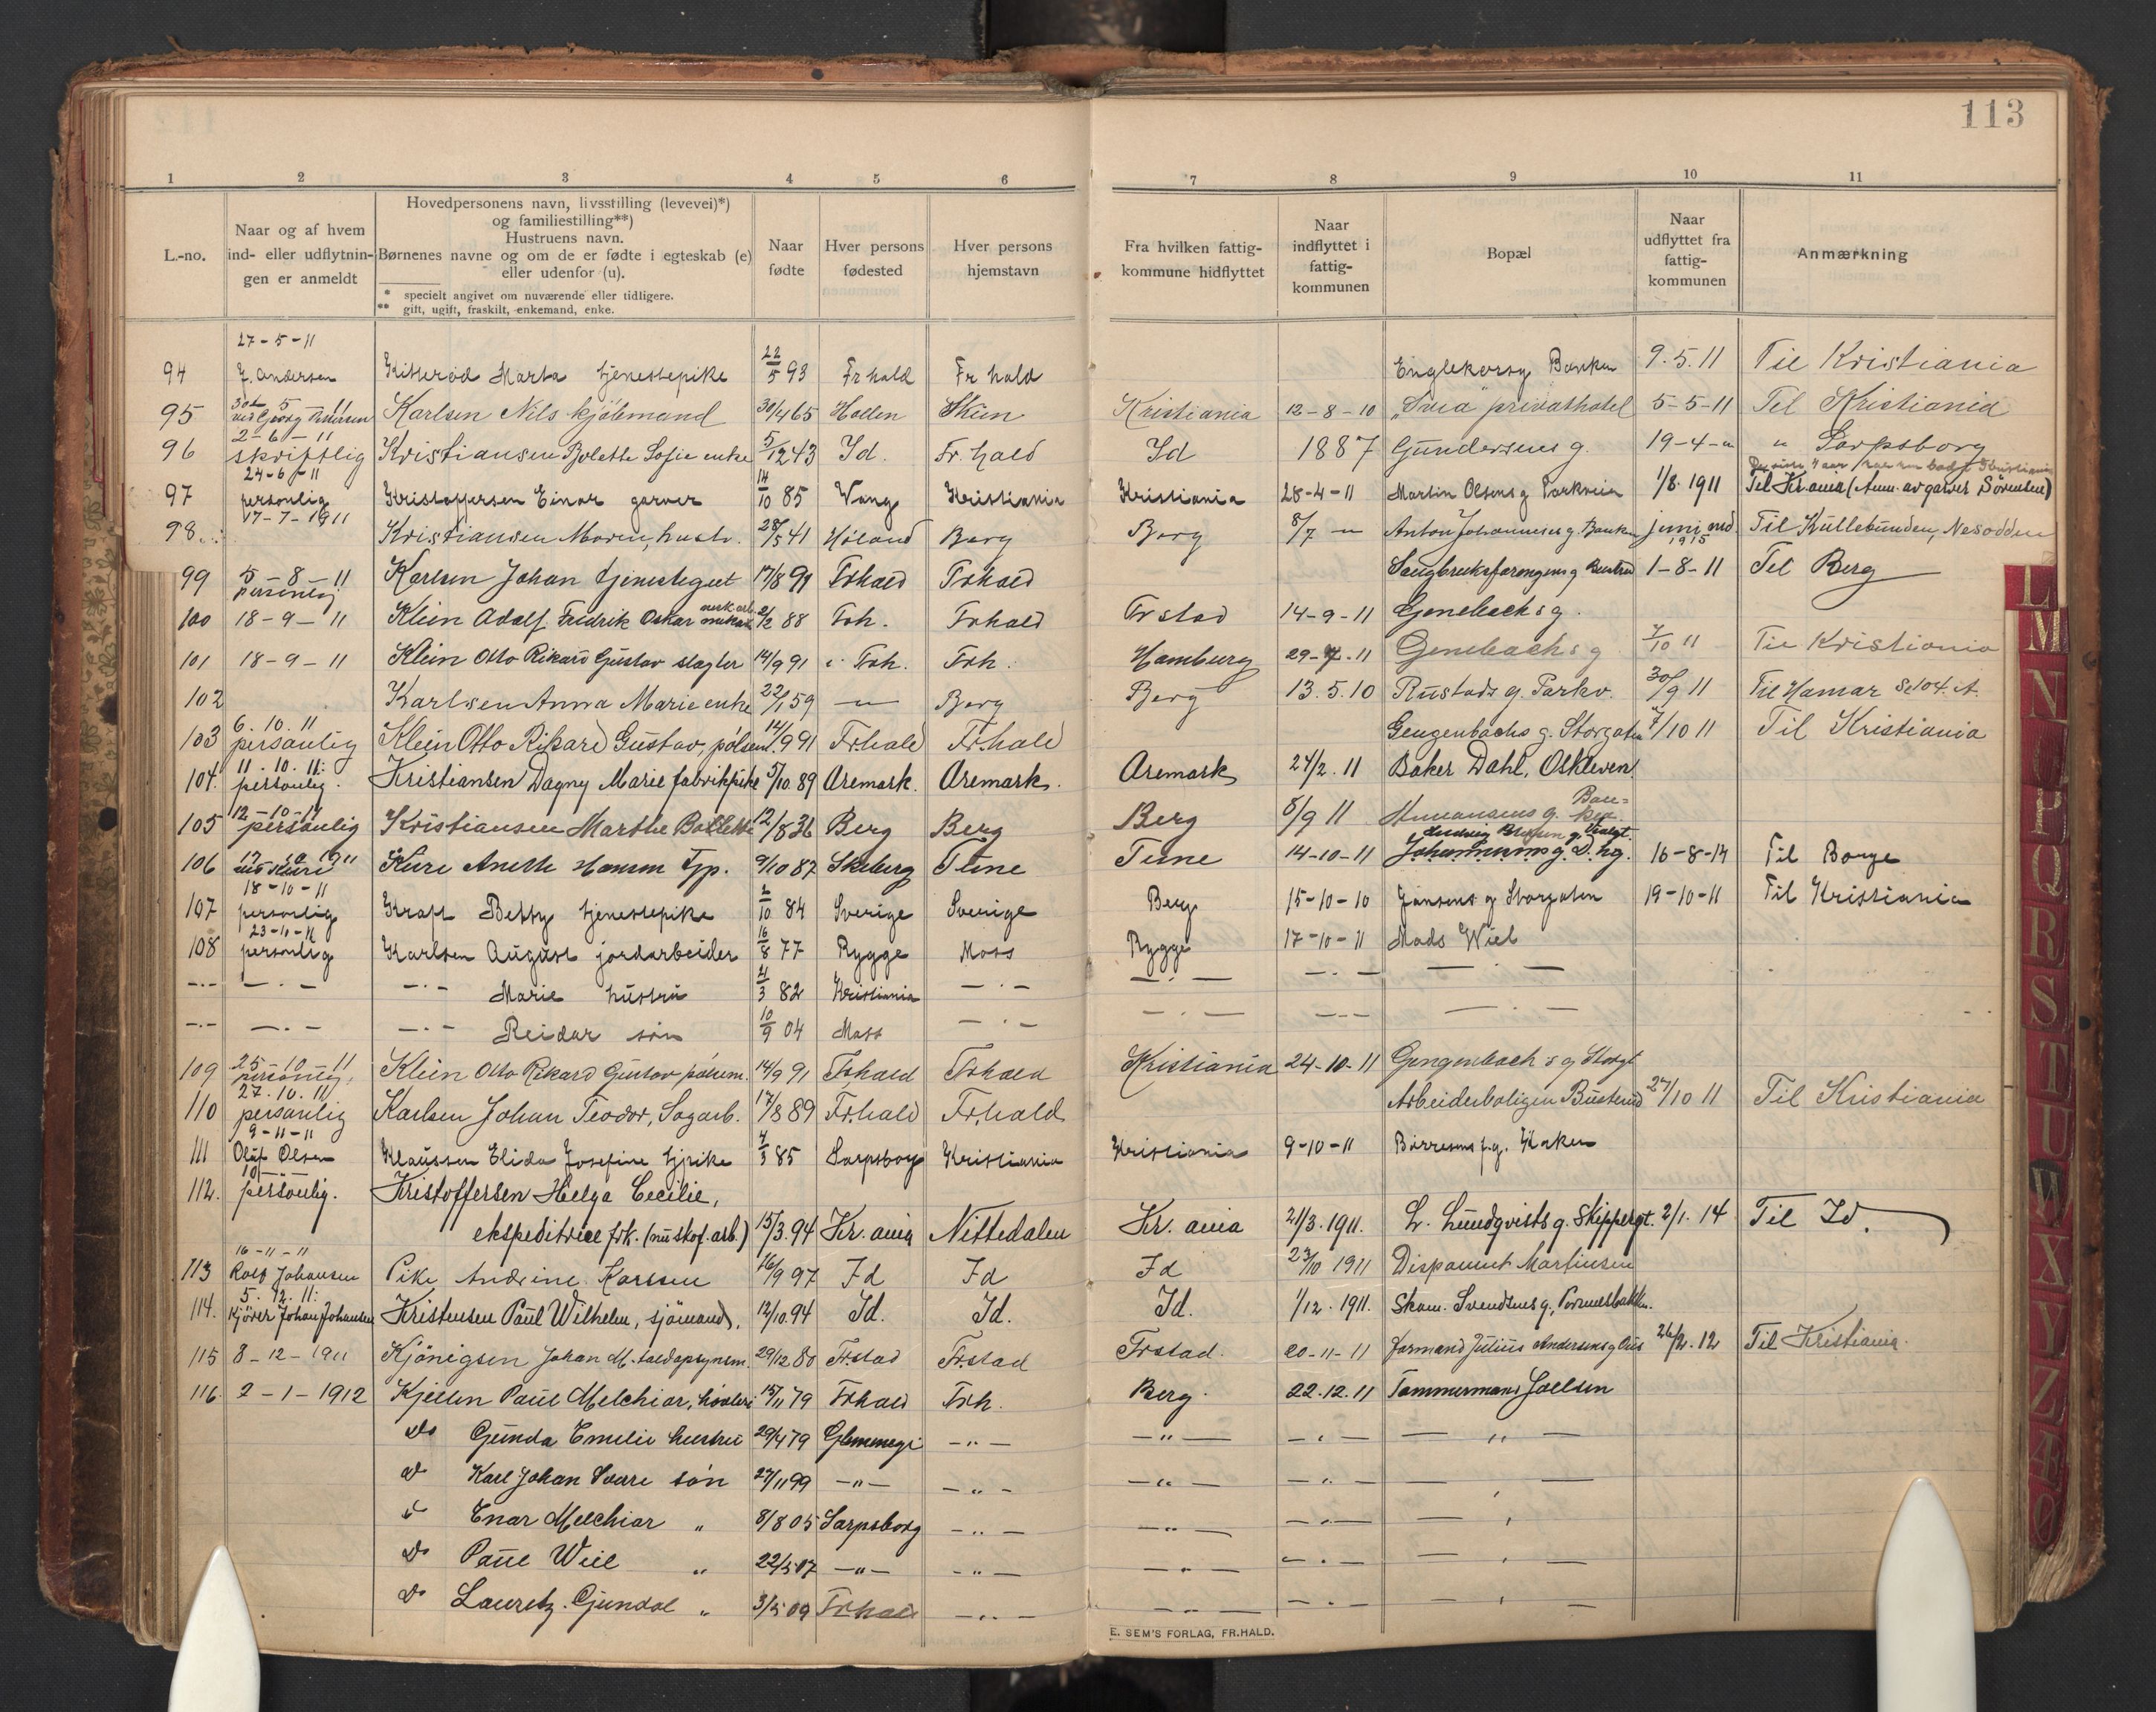 113
1 2 3 4 5 6 7 8 9 10 11
L.-no.
Naar og af hvem
ind- eller udflytnin-
gen er anmeldt
Hovedpersonens navn, livsstilling (levevei)*)
og familiestilling**)
Hustruens navn.
Børnenes navne og om de er fødte i egteskab (e)
eller udenfor (u).
* specielt angivet om nuværende eller tidligere.
** gift, ugift, fraskilt, enkemand, enke.
Naar
fødte
Hver persons
fødested
Hver persons
hjemstavn
Fra hvilken fattig-
kommune hidflyttet
Naar
indflyttet i
fattig-
kommunen
Bopæl
Naar
udflyttet fra
fattig-
kommunen
Anmærkning
27-5-11
94 J. Andersen Kitterød Marta tjenestepike 22/5 93 Frhald Frhald Banken 9.5.11 Til Kristiania
95 Karlsen Nils kjøbmand 30/4 65 Kristiania 12-8-10 "Svea" privathotel 5-5-11 Til Kristiania
2-6-11
96 skriftlig Kristiansen Bolette Sofie enke 5/12 43 Id. Fr.hald Id 1887 Gundersens g. 19-4-" " Sarpsborg
24-6-11
97 personlig Kristoffersen Einar garver 14/10 85 Vang Kristiania Kristiania 28-4-11 Martin Olsens g Parkveien 1/8.1911 Til Kr.ania (Anm. av garver Sørensen)
17-7-1911
98. Kristiansen Maren, hustr. 28/5 41 Høland Berg Berg 8/7 — Anton Johannesens g. Banken juni md 1915 Til Kullebunden, Nesodden
99 5-8-11 personlig Karlsen Johan tjenestegut 17/8 91 Frhald Frhald 1-8-11 Til Berg
100 18-9-11 Klein Adolf Fredrik Oskar 2/2 88 Frh. Frhald Frstad 14-9-11 Genebachs g.
101 18-9-11 Klein Otto Rikard Gustav slagter 14/9 91 Frh. Frh. Hamburg 29-7-11 Genebachs g 7/10 11 Til Kristiania
102 Karlsen Anna Marie enke 22/1 59 — " — Berg Berg 13.5.10 Rustads g. Parkv. 30/9 11 Til Hamar
6.10.11
103 personlig Klein Otto Rikard Gustav, pølsem. 14/9 91 Fr.hald Fr.hald Gengenbachs g. Storgaten 7/10 11 Til Kristiania
11.10.11.
104. personlig. Kristiansen Dagny Marie fabrikpike 5/10.89 Aremark. Aremark. Aremark 24/2.11 Baker Dahl, Oskleven
12-10-11
105 personlig Kristiansen Marthe Bollette 12/8 36 Berg Berg Berg 8/9 11 Hmansens g. Ban=
ken.
106 Kure Anette Hansen Tjp. 9/10 87 Skeberg Tune Tune 14-10-11 Johannesens g. D. hg. 16-8-14 Til Borge
18-10-11
107 personlig Kraft Betty tjenestepike 2/10 84 Sverige Sverige Berg 15-10-10 Jansens g Storgaten 19-10-11 Til Kristiania
23-10-11
108 personlig Karlsen August jordarbeider 16/8 77 Rygge Moss Rygge 17-10-11 Mads Wiel
—.— —.— —.— Marie hustru 4/3 82 Kristiania —.— —.— —.— —.—
—.— —.— —.— Reidar søn 10/9 04 Moss —.— —.— —.— —.—
25-10-11
109 personlig, Klein Otto Rikard Gustav pølsem. 14/9 91 Frhald Frhald Kristiania 24-10-11 Gengenbach's g Storgt
27.10.11
110 personlig Karlsen Johan Teodor, Sagarb. 17/8 89 Fr.hald Fr.hald Arbeiderboligen Busterud 27/10 11 Til Kristiania
9-11-11
111 Oluf Olsen Klaussen Elida Josefine tjpike 4/3 85 Sarpsborg Kristiania Kristiania 9-10-11
10 —.—
112. personlig. Kristoffersen Helga Cecilie,
ekspeditrice frk. (nu skof. arb.) 15/3.94 Kr.ania Nittedalen Kr.ania 21/3.1911. L. Lundqvists g. Skippergt. 2/1.14 Til Id.
16-11-11
113 Rolf Johansen Pike Andrine Karlsen 16/9 97 Id Id Id 23/10 1911 Disponent Martinsen
5.12.11.
114. Kjører Johan Johansen Kristensen Paul Wilhelm, sjømand, 12/10.94 Id. Id. Id. 1/12.1911. Skom. Svendsens g.,
115 8-12-1911 Kjönigsen Johan M. toldopsynsm. 29/12 80 Fr.stad Fr.stad Frstad. 20-11-11 Formand Julius Andersens g 26/2.12 Til Kristiania.
116. 2-1-1912 Kjellen Paul Melchior, høvleri 15/11 79 Frhald Frh. Berg. 22.12.11 Tømmermand Joelsen
Do Gunda Emelie hustru 29/4 79 Glemminge —"— —"— —"— —"—
Do Karl Johan Sverre søn 27/11 99 —"— —"— —"— —"— —"—
Do Enar Melchior " 8/8 05 Sarpsborg —"— —"— —"— —"—
Do Paul Wiel " 22/5 07 —"— —"— —"— —"— —"—
Do Lauretz. Gundal " 3/5 09 Frhald —"— —"— —"— —"—
E. SEM'S FORLAG, FR.HALD.
L
M
N
O
P
Q
R
S
T
U
W
X
Y
Z
Æ
Ø